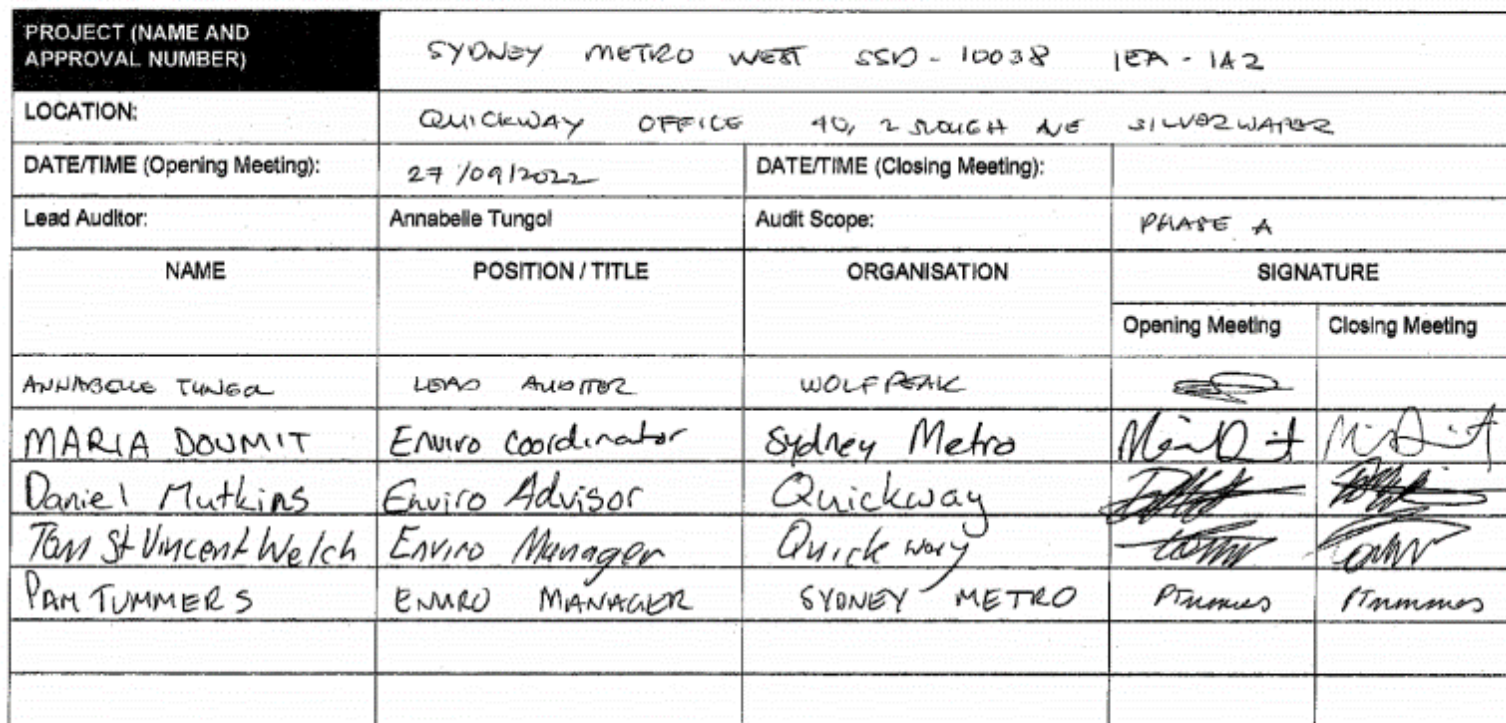 PROJECT (NAME AND
APPROVAL NUMBER)
SYDNEY METRO WEST SSD - 10038 IEA - IA2
LOCATION:
QUICKWAY OFFICE 40, 2 SLOUGH AVE SILVERWATER
DATE/TIME (Opening Meeting):
27/09/2022
DATE/TIME (Closing Meeting):
Lead Auditor:
Annabelle Tungol
Audit Scope:
PHASE A
NAME
POSITION / TITLE
ORGANISATION
SIGNATURE
Opening Meeting
Closing Meeting
ANNABELLE TUNGOL
LEAD AUDITOR
WOLFPEAK
MARIA DOUMIT
Enviro Coordinator
Sydney Metro
Daniel Mutkins
Enviro Advisor
Quickway
Tom St Vincent Welch
Enviro Manager
Quickway
PAM TUMMERS
ENVIRO MANAGER
SYDNEY METRO
PTummers
PTummers